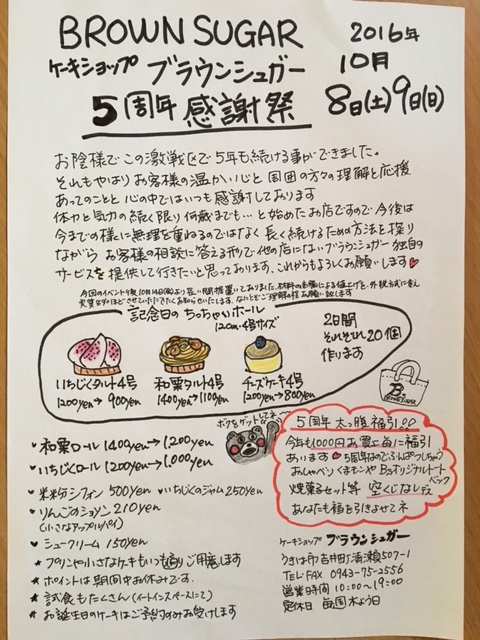 BROWN SUGAR
2016年
10月
8日(土)9日(日)
ケーキショップ ブラウンシュガー
5周年 感謝祭
お陰様でこの激戦区で5年も続ける事ができました。
それもやはりお客様の温かい心と周囲の方々の理解と応援
あってのことと心の中ではいつも感謝しております
体力と気力の続く限り何歳までも…と始めたお店ですので今後は
今までの様に無理を重ねるのではなく長く続けるための方法を探り
ながら お客様の相談に答える形で他の店にないブラウンシュガー独自の
サービスを提供して行きたいと思っております。これからもよろしくお願いします♥
記念日のちっちゃいホール
12cm・4号サイズ
2日間
それぞれ20個
作ります
いちじくタルト4号
1200yen→900yen
和栗タルト4号
1400yen→1100yen
チーズケーキ4号
1200yen→800yen
ボクをゲットしてネ
♥ 和栗ロール 1400yen→1200yen
♥ いちじくロール 1200yen→1,000yen
♥ 米粉シフォン 500yen ♥いちじくのジャム 250yen
♥ りんごのショソン 210yen
(小さなアップルパイ)
♥ シュークリーム 150yen
★ プリンや小さなケーキもいつも通りご用意します
★ ポイントは期間中お休みです。
★ 試食もたくさん(イートインスペースにて)
★ お誕生日のケーキはご予約のみお受けします
5周年 太っ腹 福引!!
今年も1000円お買上毎に福引
あります♥5周年なのでふんぱつしちゃう
おしゃべりくまモンや B'sオリジナルトート
バック
焼菓子セット等 空くじなしデス
あなたも福を引きよせてネ
ケーキショップ ブラウンシュガー
うきは市吉井町清瀬507-1
TEL・FAX 0943-75-2556
営業時間 10:00〜19:00
定休日 毎週木よう日